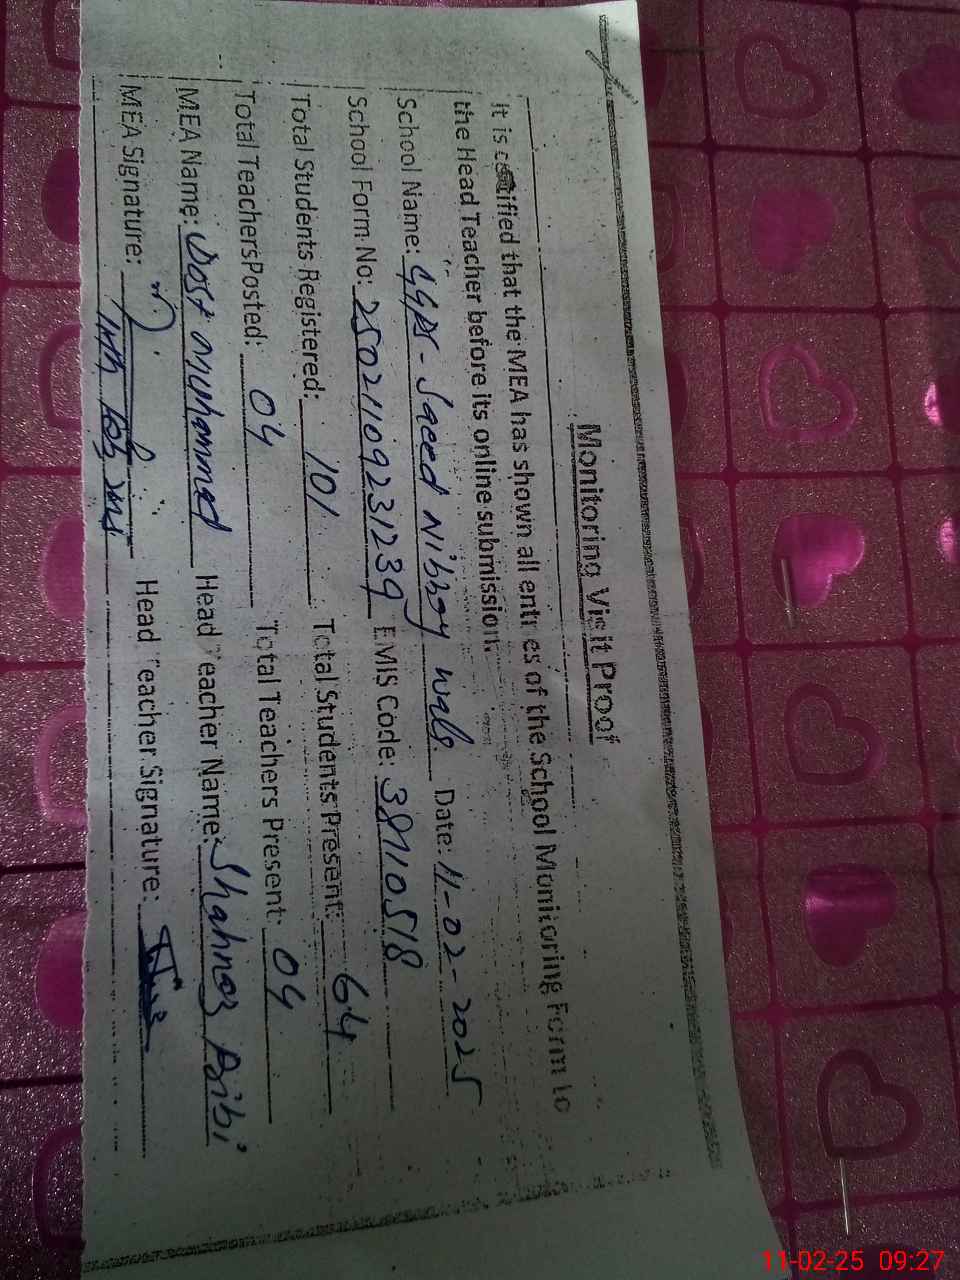 Monitoring Visit Proof
It is certified that the MEA has shown all entries of the School Monitoring Form to
the Head Teacher before its online submission.
School Name: GGPS - Saeed Nibboy Wala Date: 11-02-2025
School Form No: 25021109231239 EMIS Code: 38110518
Total Students Registered: 101 Total Students Present: 64
Total Teachers Posted: 04 Total Teachers Present: 04
MEA Name: Dost Muhammed Head Teacher Name: Shahnaz Bibi
MEA Signature: Head Teacher Signature:
11-02-25 09:27